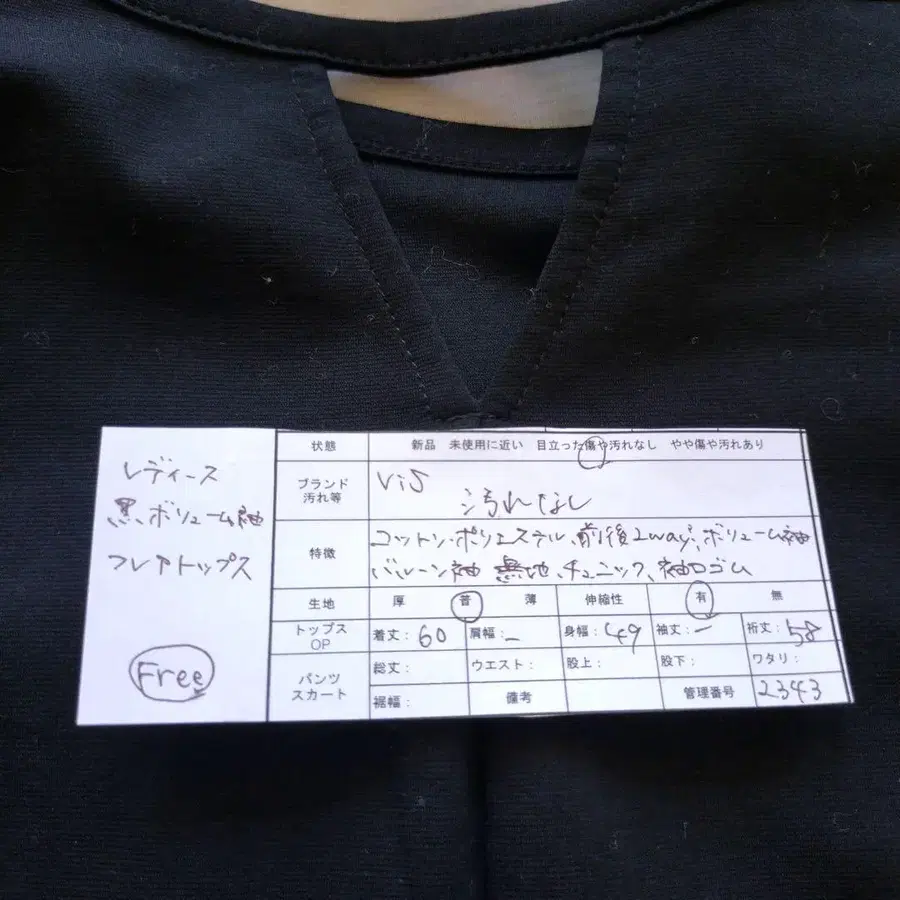 レディース
黒、ボリューム袖
フレアトップス
Free
状態 新品 未使用に近い 目立った傷や汚れなし やや傷や汚れあり
ブランド 汚れ等 ViS 汚れなし
特徴 コットン・ポリエステル、前後2way、ボリューム袖
バルーン袖 無地、チュニック、袖口ゴム
生地 厚 普 薄 伸縮性 有 無
トップス OP 着丈：60 肩幅：ー 身幅：49 袖丈：ー 裄丈：58
パンツ スカート 総丈： ウエスト： 股上： 股下： ワタリ：
裾幅： 備考 管理番号 2343